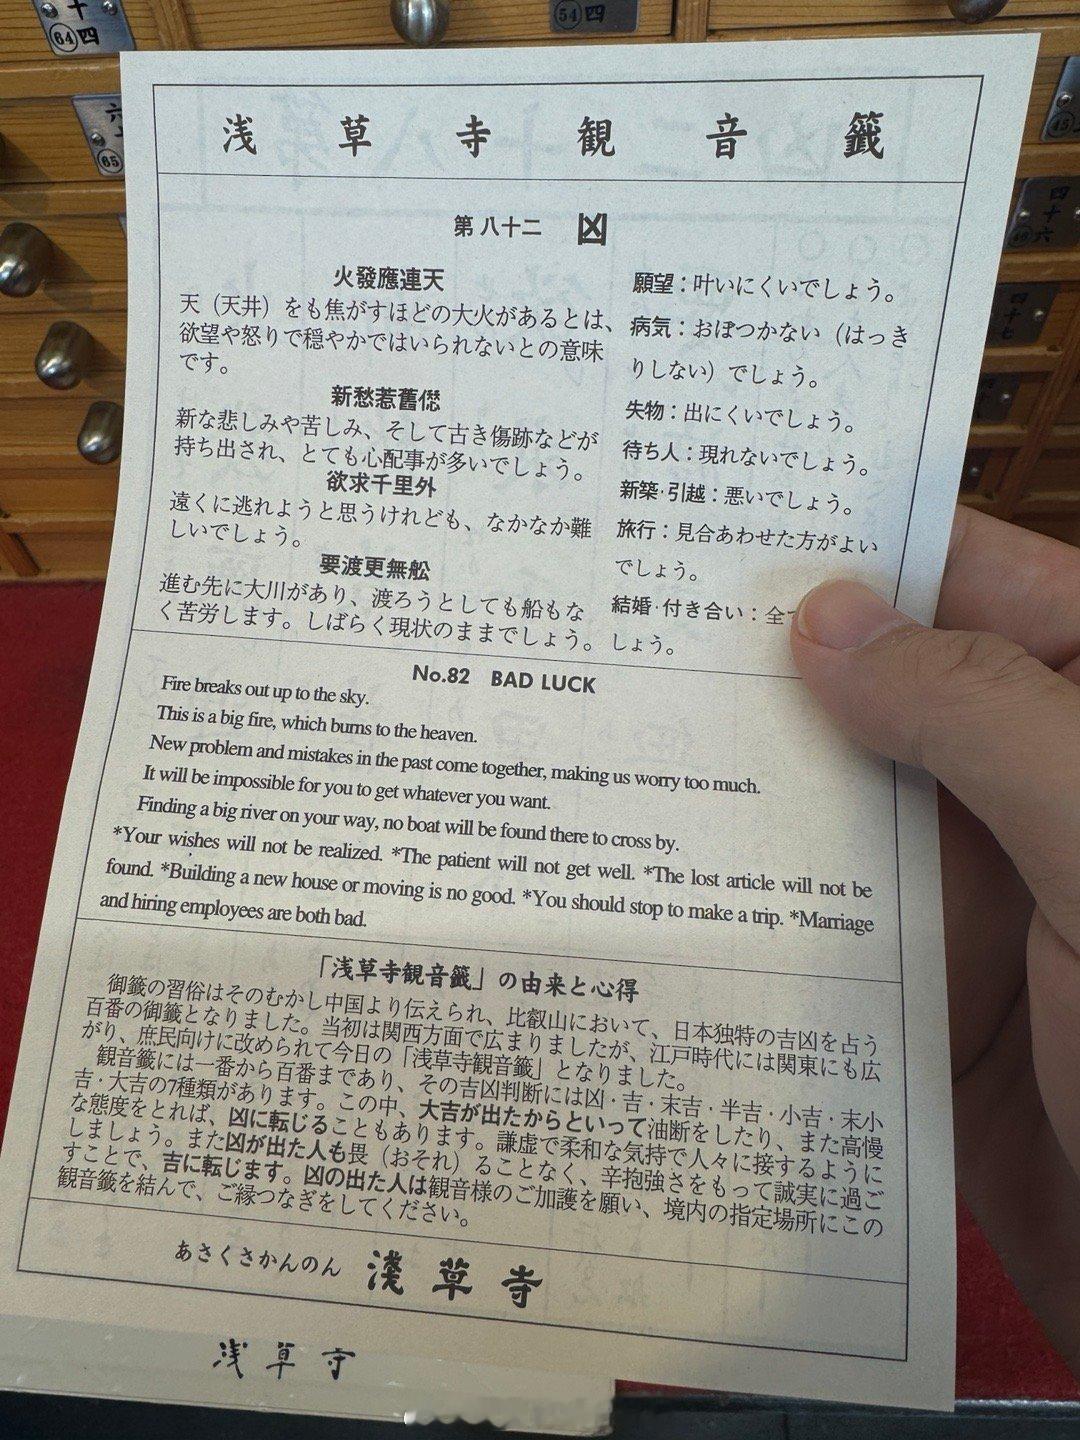 十四
64
54 四
六
65
45
四十六
46
四十七
浅草寺観音籤
第八十二 凶
火發應連天
天（天井）をも焦がすほどの大火があるとは、
欲望や怒りで穏やかではいられないとの意味
です。
新愁惹舊愆
新な悲しみや苦しみ、そして古き傷跡などが
持ち出され、とても心配事が多いでしょう。
欲求千里外
遠くに逃れようと思うけれども、なかなか難
しいでしょう。
要渡更無舩
進む先に大川があり、渡ろうとしても船もな
く苦労します。しばらく現状のままでしょう。
願望：叶いにくいでしょう。
病気：おぼつかない（はっき
りしない）でしょう。
失物：出にくいでしょう。
待ち人：現れないでしょう。
新築·引越：悪いでしょう。
旅行：見合あわせた方がよい
でしょう。
結婚·付き合い：全て
しょう。
No.82 BAD LUCK
Fire breaks out up to the sky.
This is a big fire, which burns to the heaven.
New problem and mistakes in the past come together, making us worry too much.
It will be impossible for you to get whatever you want.
Finding a big river on your way, no boat will be found there to cross by.
*Your wishes will not be realized. *The patient will not get well. *The lost article will not be
found. *Building a new house or moving is no good. *You should stop to make a trip. *Marriage
and hiring employees are both bad.
「浅草寺観音籤」の由来と心得
御籤の習俗はそのむかし中国より伝えられ、比叡山において、日本独特の吉凶を占う
百番の御籤となりました。当初は関西方面で広まりましたが、江戸時代には関東にも広
がり、庶民向けに改められて今日の「浅草寺観音籤」となりました。
観音籤には一番から百番まであり、その吉凶判断には凶·吉·末吉·半吉·小吉·末小
吉·大吉の7種類があります。この中、大吉が出たからといって油断をしたり、また高慢
な態度をとれば、凶に転じることもあります。謙虚で柔和な気持で人々に接するように
しましょう。また凶が出た人も畏（おそれ）ることなく、辛抱強さをもって誠実に過ご
すことで、吉に転じます。凶の出た人は観音様のご加護を願い、境内の指定場所にこの
観音籤を結んで、ご縁つなぎをしてください。
あさくさかんのん 淺草寺
浅草寺